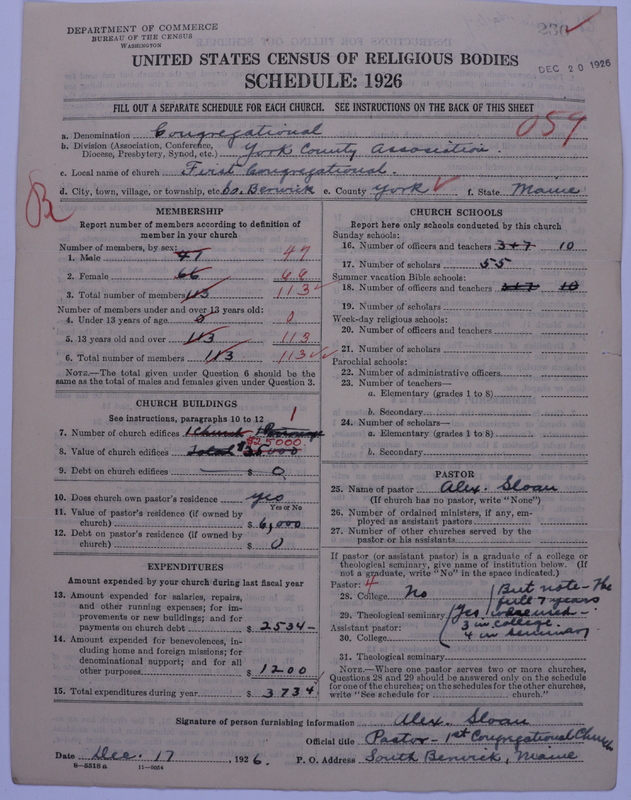 DEPARTMENT OF COMMERCE
BUREAU OF THE CENSUS
WASHINGTON
UNITED STATES CENSUS OF RELIGIOUS BODIES
DEC 20 1926
SCHEDULE: 1926
FILL OUT A SEPARATE SCHEDULE FOR EACH CHURCH. SEE INSTRUCTIONS ON THE BACK OF THIS SHEET
059
a. Denomination Congregational
b. Division (Association, Conference, Diocese, Presbytery, Synod, etc.) York County Association.
c. Local name of church First Congregational.
d. City, town, village, or township, etc. So. Berwick e. County York f. State Maine
MEMBERSHIP
Report number of members according to definition of member in your church
Number of members, by sex:
1. Male 47 47
2. Female 66 66
3. Total number of members 113 113
Number of members under and over 13 years old:
4. Under 13 years of age 0 0
5. 13 years old and over 113 113
6. Total number of members 113 113
NOTE.—The total given under Question 6 should be the same as the total of males and females given under Question 3.
CHURCH BUILDINGS
See instructions, paragraphs 10 to 12 1
7. Number of church edifices 1 Church 1 Parsonage
$25000.
8. Value of church edifices Total $
9. Debt on church edifices $ 0
10. Does church own pastor's residence yes
Yes or No
11. Value of pastor's residence (if owned by church) $ 6,000
12. Debt on pastor's residence (if owned by church) $ 0
EXPENDITURES
Amount expended by your church during last fiscal year
13. Amount expended for salaries, repairs, and other running expenses; for improvements or new buildings; and for payments on church debt $ 2534-
14. Amount expended for benevolences, including home and foreign missions; for denominational support; and for all other purposes $ 1200
15. Total expenditures during year $ 3734
CHURCH SCHOOLS
Report here only schools conducted by this church
Sunday schools:
16. Number of officers and teachers 3+7 10
17. Number of scholars 55
Summer vacation Bible schools:
18. Number of officers and teachers 3+7 10
19. Number of scholars
Week-day religious schools:
20. Number of officers and teachers
21. Number of scholars
Parochial schools:
22. Number of administrative officers
23. Number of teachers—
a. Elementary (grades 1 to 8)
b. Secondary
24. Number of scholars—
a. Elementary (grades 1 to 8)
b. Secondary
PASTOR
25. Name of pastor Alex. Sloan
(If church has no pastor, write "None")
26. Number of ordained ministers, if any, employed as assistant pastors
27. Number of other churches served by the pastor or his assistants
If pastor (or assistant pastor) is a graduate of a college or theological seminary, give name of institution below. (If not a graduate, write "No" in the space indicated.)
Pastor: 4
28. College No
But note - The full 7 years
29. Theological seminary Yes
3 in college.
4 in seminary
Assistant pastor:
30. College
31. Theological seminary
NOTE.—Where one pastor serves two or more churches, Questions 28 and 29 should be answered only on the schedule for one of the churches; on the schedules for the other churches, write "See schedule for church."
Signature of person furnishing information Alex. Sloan
Official title Pastor - 1st Congregational Church
Date Dec. 17, 1926. P. O. Address South Berwick, Maine
8—5518 a 11—9054